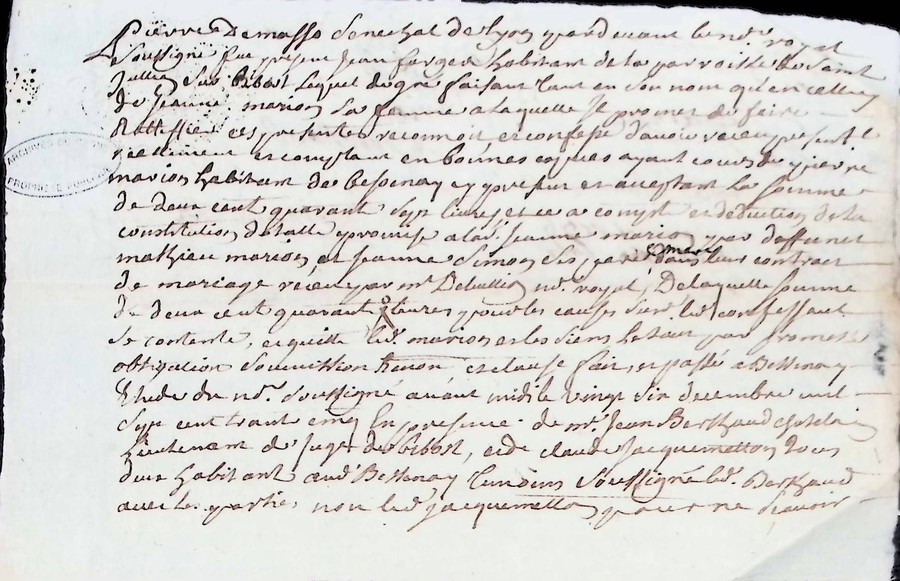 Pierre Demasso Senechal de Lyon pardevant le not. royal
Soussigné fut present Jean farges habitant de la parroisse de Saint
Jullien Sur bibost Lequel de gré faisant tant en son nom qu'en celluy
de Jeanne marion sa femme a laquelle Il promet de faire
Rattiffier ces presentes reconnoit et confesse d'avoir receu presentt
reellement et comptant en bonnes especes ayant cours de pierre
marion habitant de bessenay cy present et acceptant la somme
de deux cent quarant sept livres et ce a compte et deduction de la
constitution dotalle promise a lad. Jeanne marion par deffunct
mathieu marion et Jeanne Simon ses pere et mere dans leur contract
de mariage receu par me not royal, De laquelle somme
de deux cent quarant livres pour les causes susd. led. confessant
se contente, et quitte led. marion et les siens Le tout par promesse
obligation soumission renon et clause fait, et passé a Bessenay
Etude du not. soussigné avant midi le vingt six decembre mil
sept cent trant cinq En presence de me. Jean Berthaud chatelain
Lieutenant de Juge de bibost, et de claude Jacquemetton tous
deux habitant aud. Bessenay temoins soussigné led. Berthaud
avec les parties non led. Jacquemetton pour ne scavoir
ARCHIVES DU RHONE
PROPRIETE PUBLIQUE